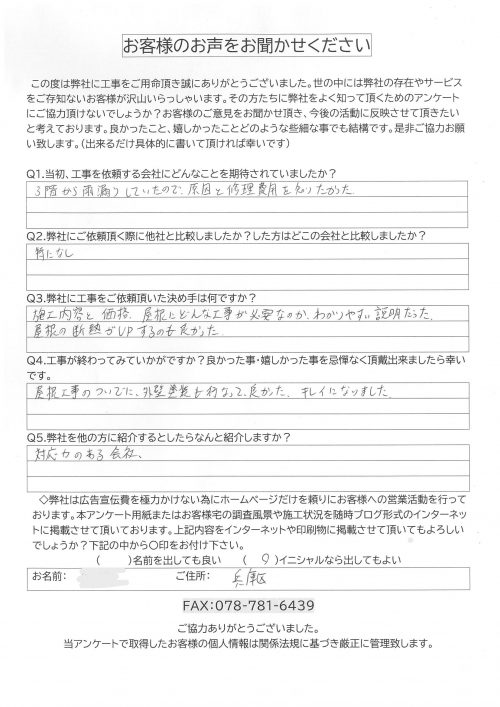 お客様のお声をお聞かせください
この度は弊社に工事をご用命頂き誠にありがとうございました。世の中には弊社の存在やサービス
をご存知ないお客様が沢山いらっしゃいます。その方たちに弊社をよく知って頂くためのアンケート
にご協力頂けないでしょうか？お客様のご意見をお聞かせ頂き、今後の活動に反映させて頂きたい
と考えております。良かったこと、嬉しかったことどのような些細な事でも結構です。是非ご協力お願
い致します。（出来るだけ具体的に書いて頂ければ幸いです）
Q1.当初、工事を依頼する会社にどんなことを期待されていましたか？
3階から雨漏りしていたので、原因と修理費用を知りたかった
Q2.弊社にご依頼頂く際に他社と比較しましたか？した方はどこの会社と比較しましたか？
特になし
Q3.弊社に工事をご依頼頂いた決め手は何ですか？
施工内容と価格、屋根にどんな工事が必要なのか、わかりやすい説明だった。
屋根の断熱がUPするのも良かった
Q4.工事が終わってみていかがですか？良かった事・嬉しかった事を忌憚なく頂戴出来ましたら幸い
です。
屋根工事のついでに、外壁塗装も行なって、良かった、キレイになりました
Q5.弊社を他の方に紹介するとしたらなんと紹介しますか？
対応力のある会社、
◇弊社は広告宣伝費を極力かけない為にホームページだけを頼りにお客様への営業活動を行って
おります。本アンケート用紙またはお客様宅の調査風景や施工状況を随時ブログ形式のインターネッ
トに掲載させて頂いております。上記内容をインターネットや印刷物に掲載させて頂いてもよろしい
でしょうか？下記の中から〇印をお付け下さい。
（　　）名前を出しても良い　（ 〇 ）イニシャルなら出してもよい
お名前：　ご住所：　兵庫区
FAX:078-781-6439
ご協力ありがとうございました。
当アンケートで取得したお客様の個人情報は関係法規に基づき厳正に管理致します。